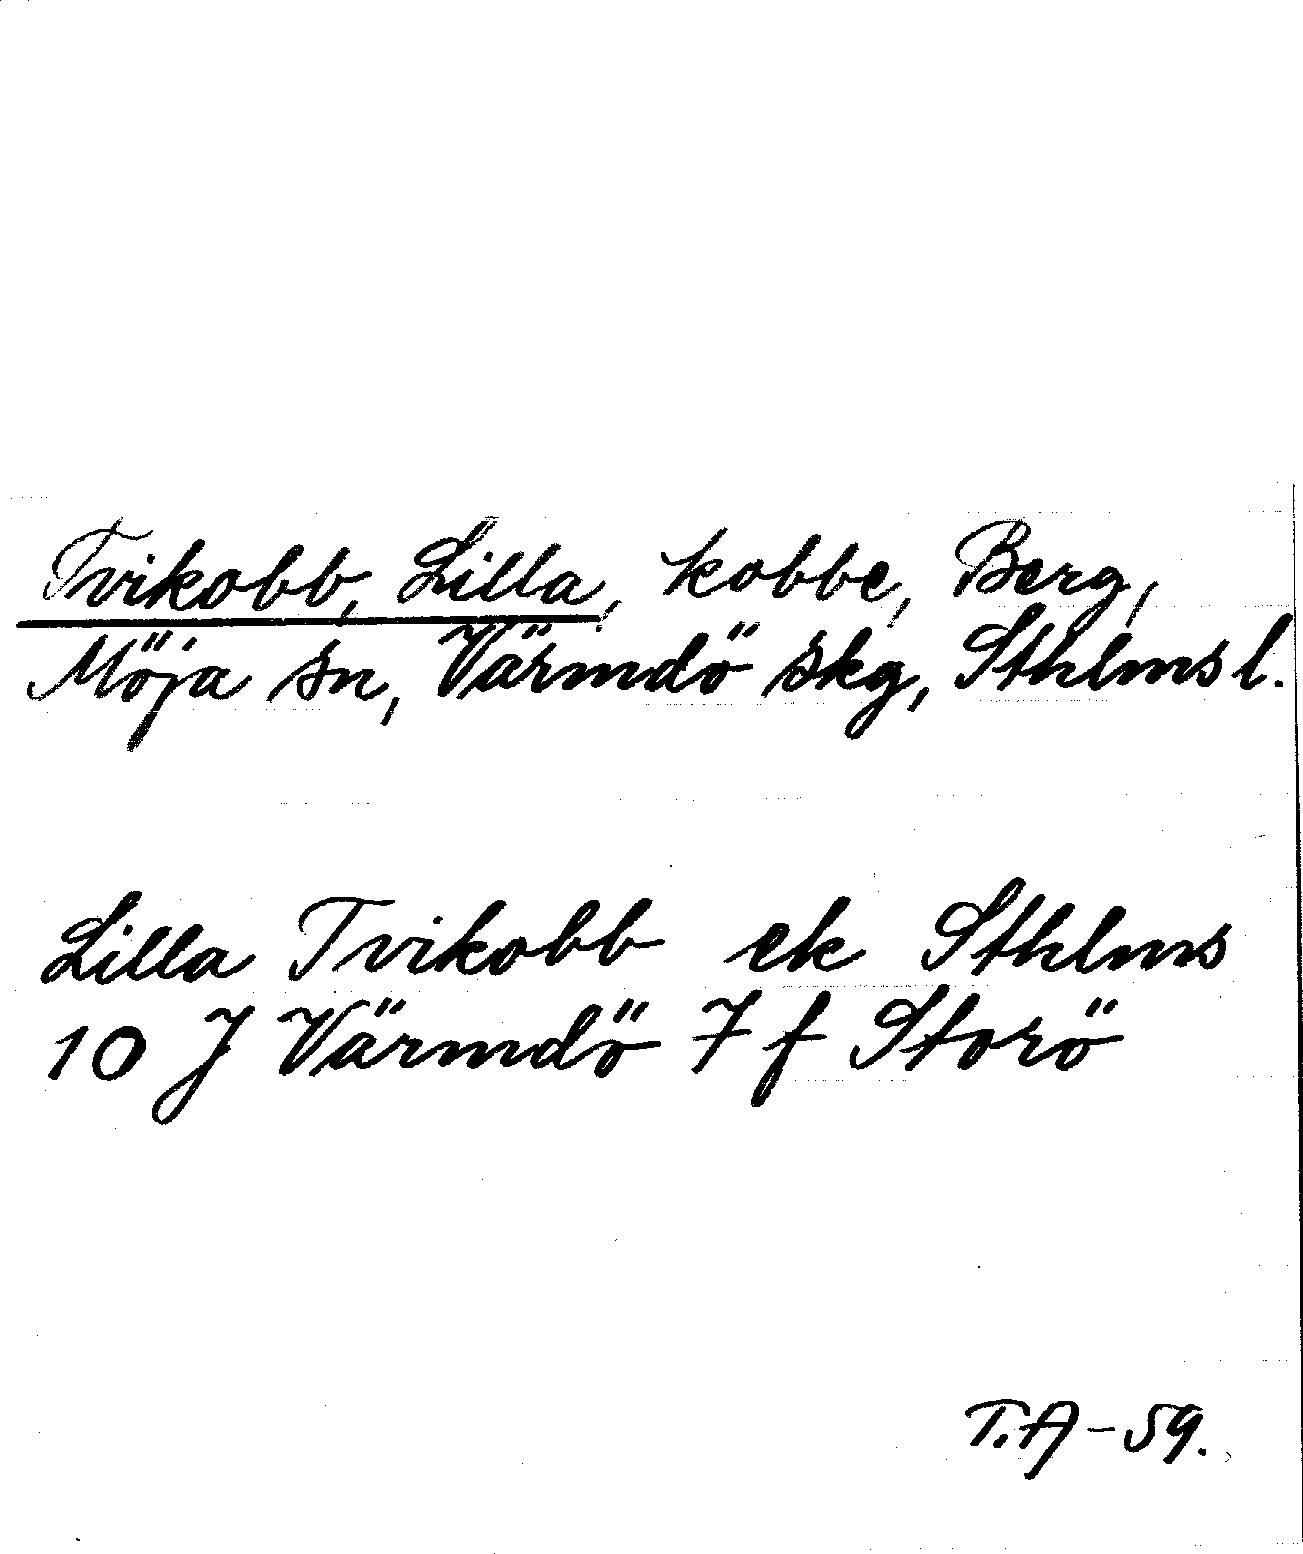 Tvikobb, Lilla, kobbe, Berg,
Möja sn, Värmdö skg, Sthlms l.
Lilla Tvikobb ek Sthlms
10 J Värmdö 7 f Storö
T.A-59.